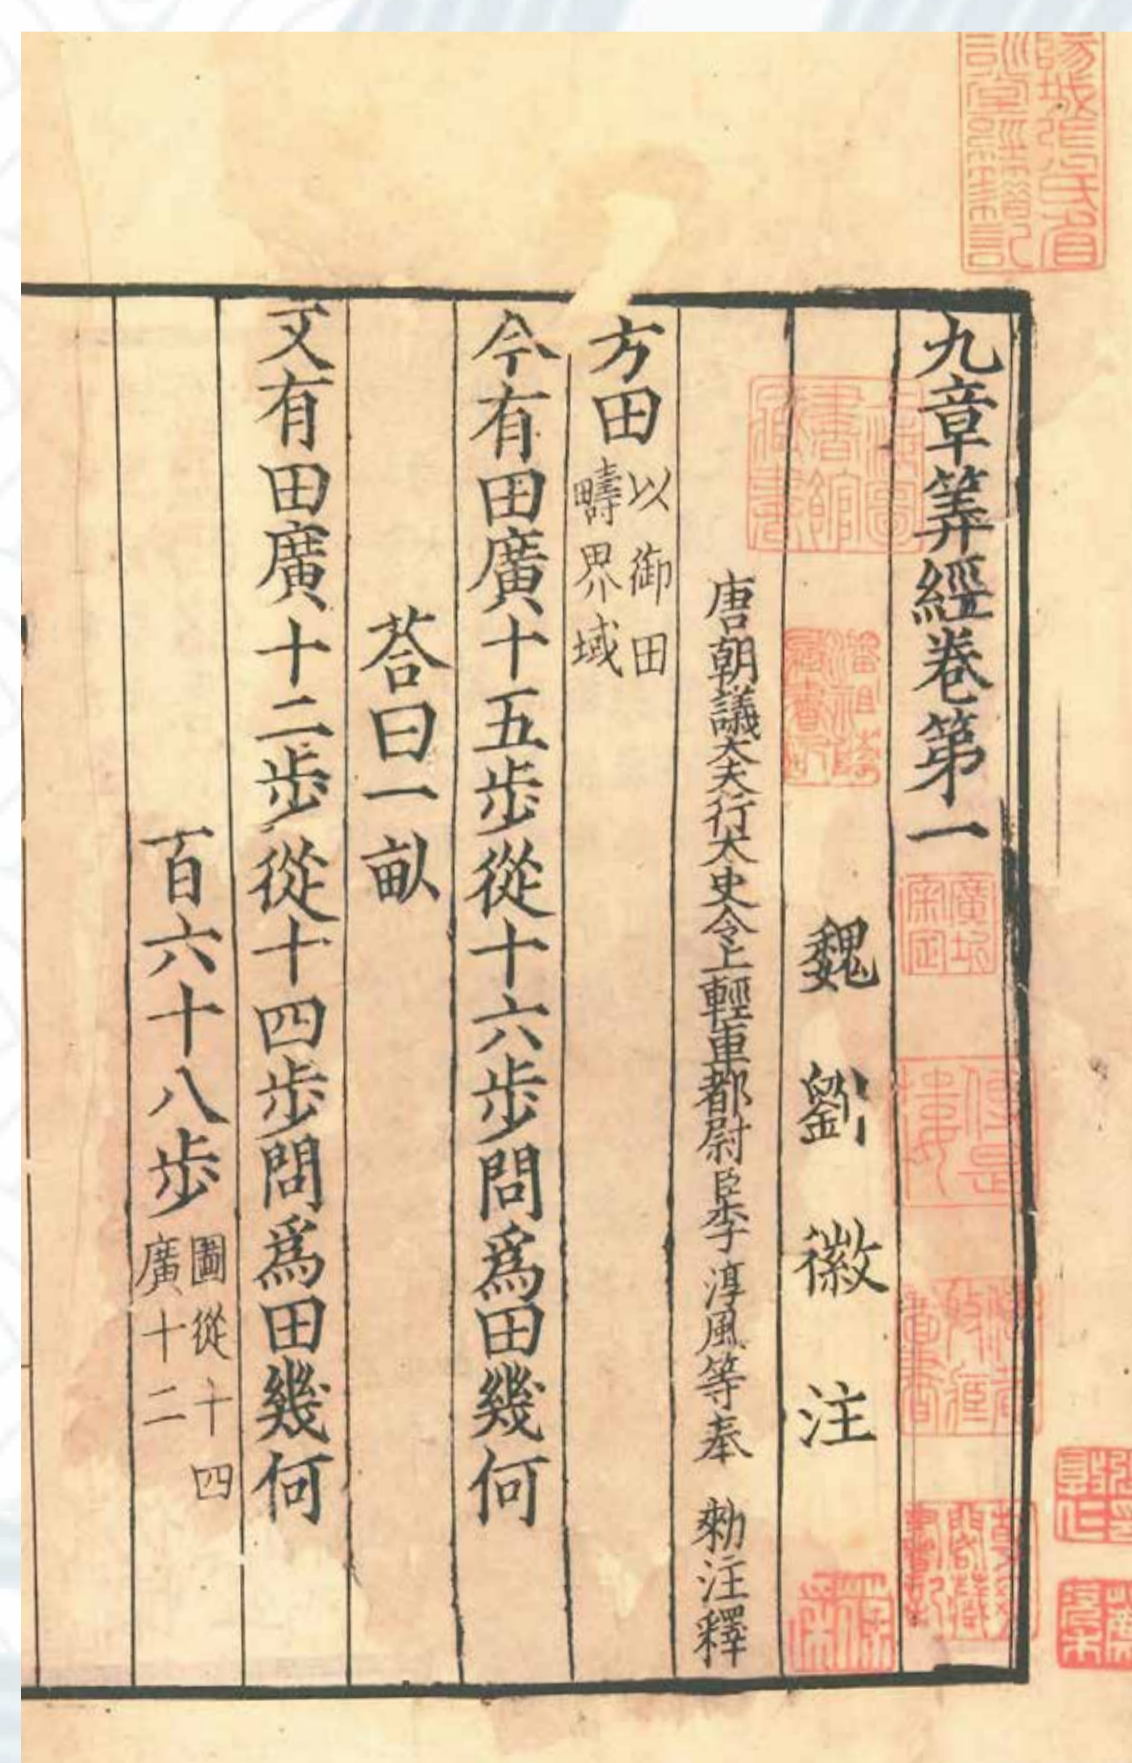 九章筭經卷第一
魏劉徽注
唐朝議大夫行太史令上輕車都尉臣李淳風等奉勑注釋
方田以御田
疇界域
今有田廣十五步從十六步問爲田幾何
荅曰一畝
又有田廣十二步從十四步問爲田幾何
百六十八步圖從十四
廣十二